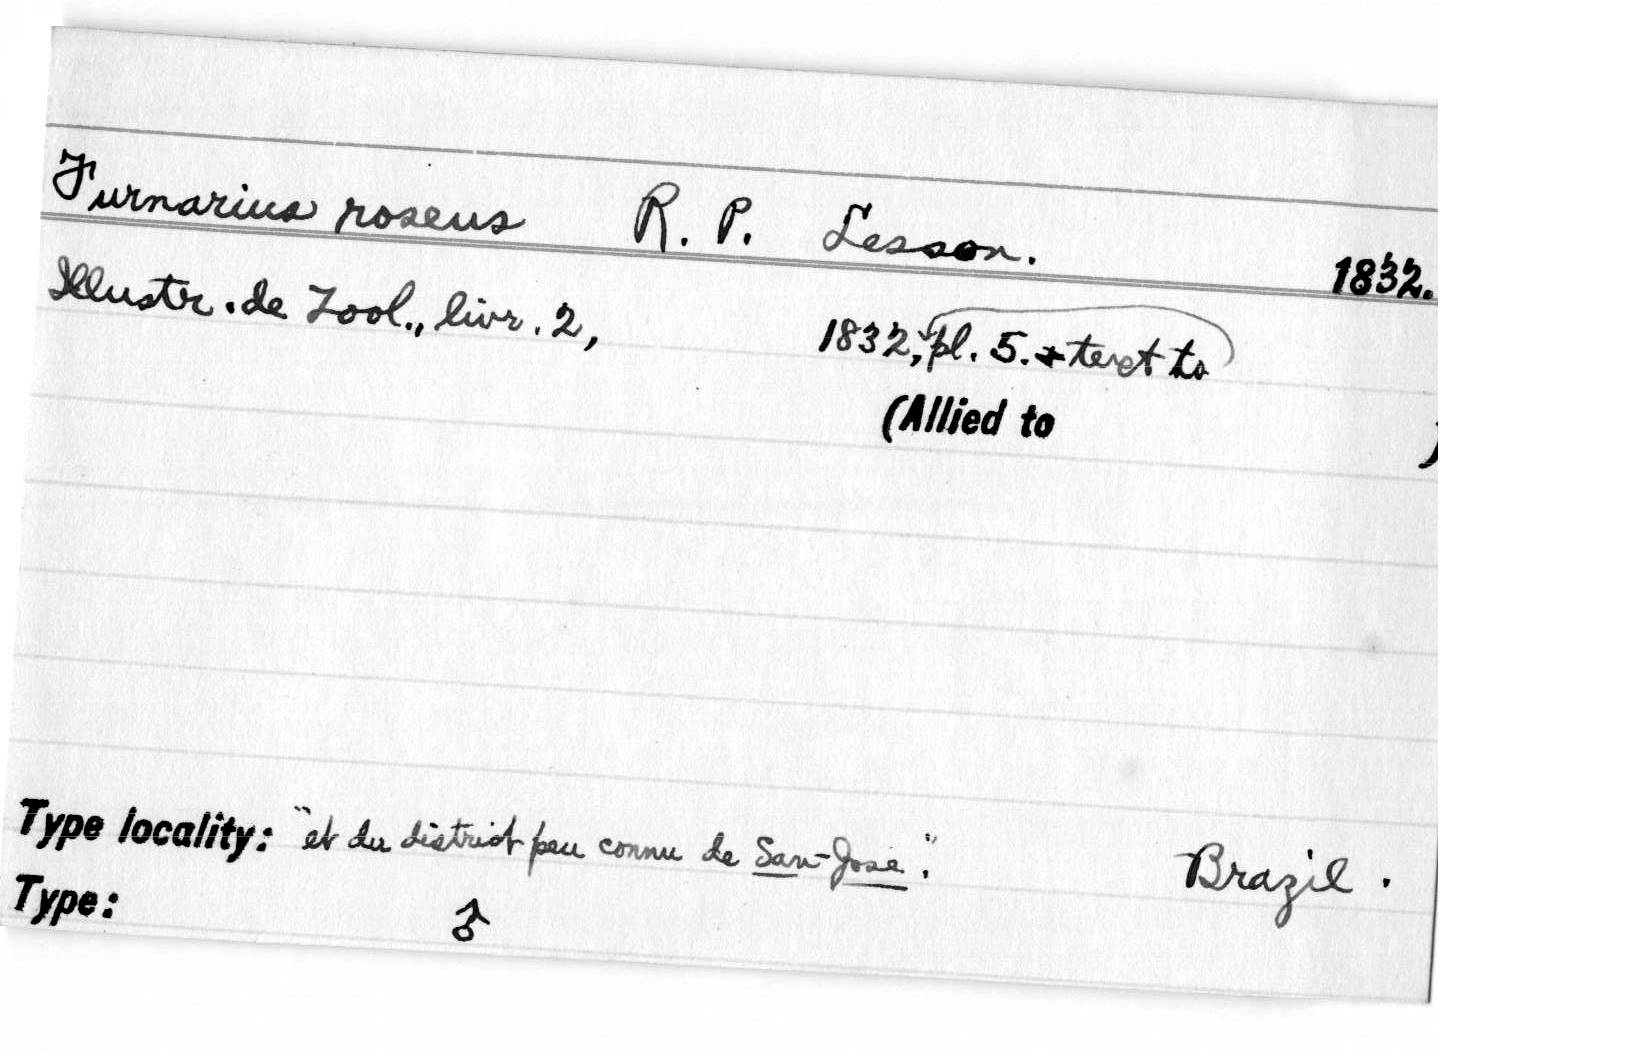 Furnarius roseus R. P. Lesson. 1832.
Illustr. de Zool., livr. 2, 1832, pl. 5. + text to
(Allied to )
Type locality: "et du district peu connu de San-Jose." Brazil.
Type: ♂